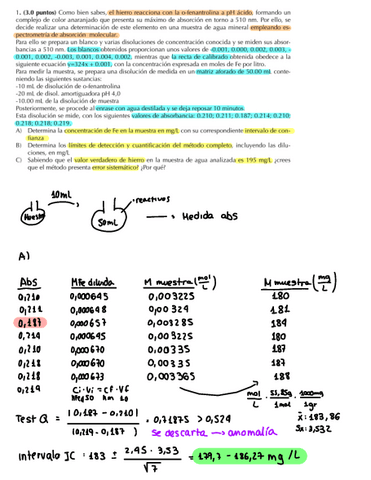 1. (3.0 puntos) Como bien sabes, el hierro reacciona con la o-fenantrolina a pH ácido, formando un
complejo de color anaranjado que presenta su máximo de absorción en torno a 510 nm. Por ello, se
decide realizar una determinación de este elemento en una muestra de agua mineral empleando es-
pectrometría de absorción molecular.
Para ello se prepara un blanco y varias disoluciones de concentración conocida y se miden sus absor-
bancias a 510 nm. Los blancos obtenidos proporcionan unos valores de -0.001, 0.000, 0.002, 0.003, -
0.001, 0.002, -0.003, 0.001, 0.004, 0.002, mientras que la recta de calibrado obtenida obedece a la
siguiente ecuación y=324x + 0.001, con la concentración expresada en moles de Fe por litro.
Para medir la muestra, se prepara una disolución de medida en un matraz aforado de 50.00 mL conte-
niendo las siguientes sustancias:
-10 mL de disolución de o-fenantrolina
-20 mL de disol. amortiguadora pH 4,0
-10.00 mL de disolución de muestra
Posteriormente, se procede al enrase con agua destilada y se deja reposar 10 minutos.
Esta disolución se mide, con los siguientes valores de absorbancia: 0.210; 0.211; 0.187; 0.214; 0.210;
0.218; 0.218; 0.219.
A) Determina la concentración de Fe en la muestra en mg/L con su correspondiente intervalo de con-
fianza
B) Determina los límites de detección y cuantificación del método completo, incluyendo las dilu-
ciones, en mg/L
C) Sabiendo que el valor verdadero de hierro en la muestra de agua analizada es 195 mg/L ¿crees
que el método presenta error sistemático? ¿Por qué?
10mL
reactivos
Muestra
50mL
Medida abs
A)
Abs MFe diluida M muestra (mol/L) M muestra (mg/L)
0,210 0,000645 0,003225 180
0,211 0,000648 0,00324 181
0,187 0,000657 0,003285 184
0,214 0,000645 0,003225 180
0,210 0,000670 0,00335 187
0,218 0,000670 0,00335 187
0,218 0,000673 0,003365 188
0,219 Ci·Vi = Cf·Vf mol/L · 55,85g/1mol · 1000mg/1gr
x̄: 183,86
Sx: 3,532
Test Q = |0,187 - 0,210| / (0,219 - 0,187) = 0,71875 > 0,524
Se descarta → anomalía
Intervalo IC = 183 ± 2,45 · 3,53 / √7 = 179,7 - 186,27 mg/L